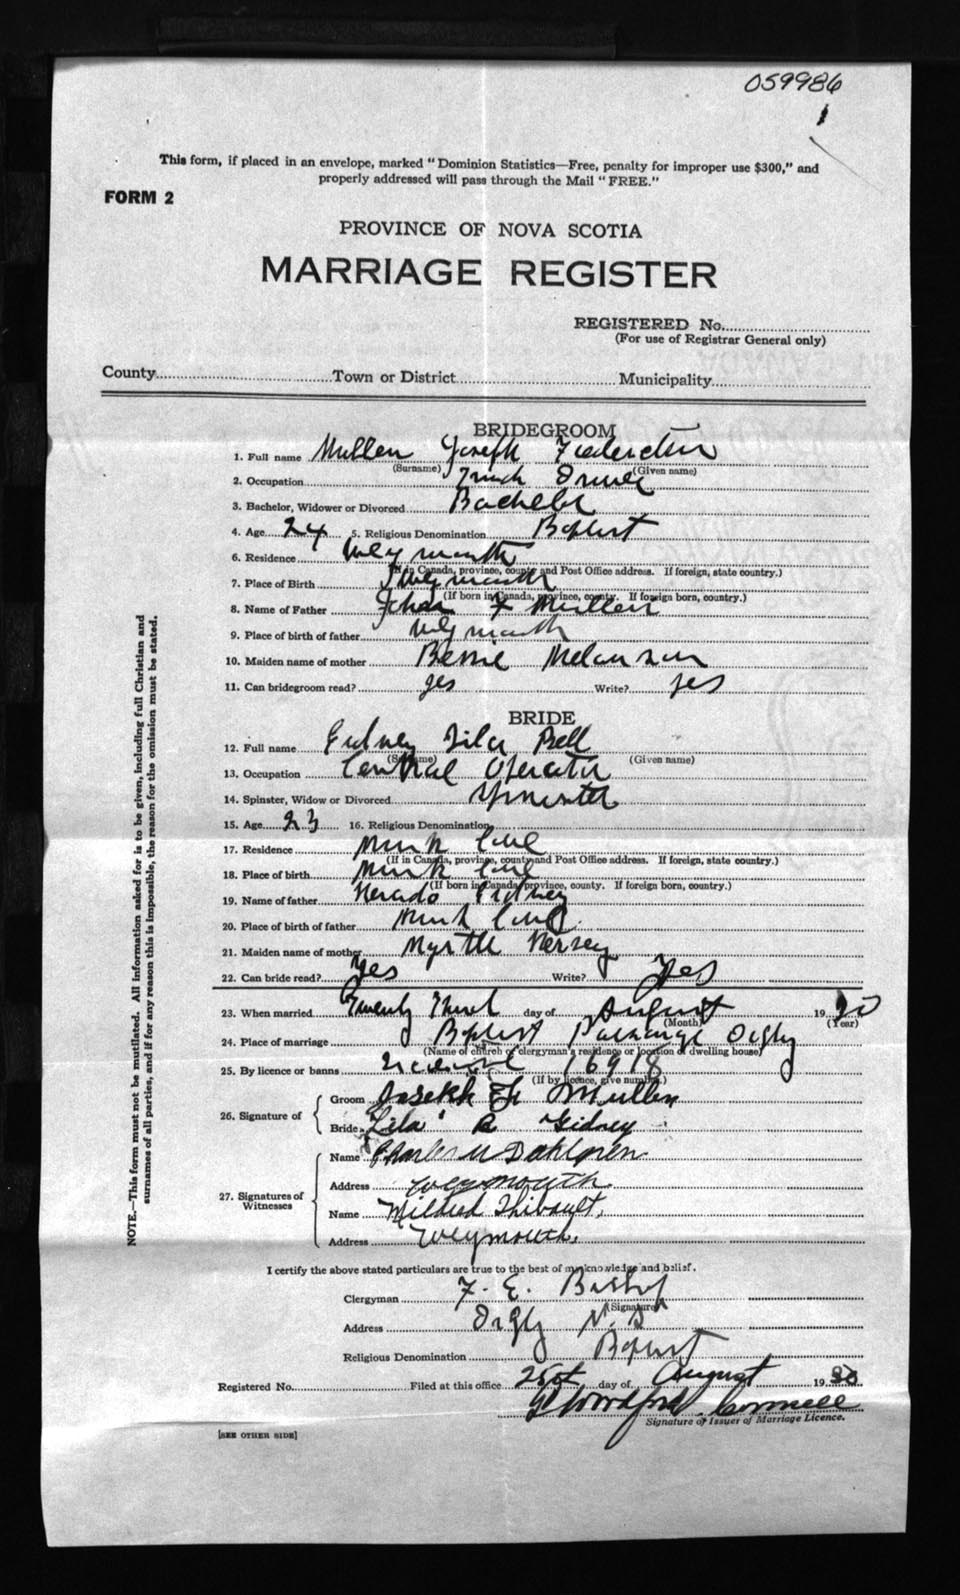 059986
1
This form, if placed in an envelope, marked "Dominion Statistics—Free, penalty for improper use $300," and
properly addressed will pass through the Mail "FREE."
FORM 2
PROVINCE OF NOVA SCOTIA
MARRIAGE REGISTER
REGISTERED No.
(For use of Registrar General only)
County Town or District Municipality
BRIDEGROOM
1. Full name Mullen Joseph
(Surname) (Given name)
2. Occupation Truck Driver
3. Bachelor, Widower or Divorced Bachelor
4. Age 24 5. Religious Denomination Baptist
6. Residence Weymouth
(If in Canada, province, county and Post Office address. If foreign, state country.)
7. Place of Birth Weymouth
(If born in Canada, province, county. If foreign born, country.)
8. Name of Father John F Mullen
9. Place of birth of father Weymouth
10. Maiden name of mother Bessie Melanson
11. Can bridegroom read? yes Write? yes
BRIDE
12. Full name Gidney Lila Bell
(Surname) (Given name)
13. Occupation Central Operator
14. Spinster, Widow or Divorced Spinster
15. Age 23 16. Religious Denomination
17. Residence Mink Cove
(If in Canada, province, county and Post Office address. If foreign, state country.)
18. Place of birth Mink Cove
(If born in Canada, province, county. If foreign born, country.)
19. Name of father Gidney
20. Place of birth of father Mink Cove
21. Maiden name of mother Myrtle Hersey
22. Can bride read? Yes Write? Yes
23. When married Twenty Third day of August 1930
(Month) (Year)
24. Place of marriage Baptist Parsonage Digby
(Name of church or clergyman's residence or location of dwelling house)
25. By licence or banns Licence 16918
(If by licence, give number.)
26. Signature of
Groom Joseph F. Mullen
Bride Lila B Gidney
27. Signatures of Witnesses
Name Charles M Dahlgren
Address Weymouth
Name Mildred Thibault,
Address Weymouth,
I certify the above stated particulars are true to the best of my knowledge and belief.
Clergyman F. E. Bishop
(Signature)
Address Digby N. S
Religious Denomination Baptist
Registered No. Filed at this office 25st day of August 1930
Signature of Issuer of Marriage Licence.
[SEE OTHER SIDE]
NOTE.—This form must not be mutilated. All information asked for is to be given, including full Christian and
surnames of all parties, and if for any reason this is impossible, the reason for the omission must be stated.